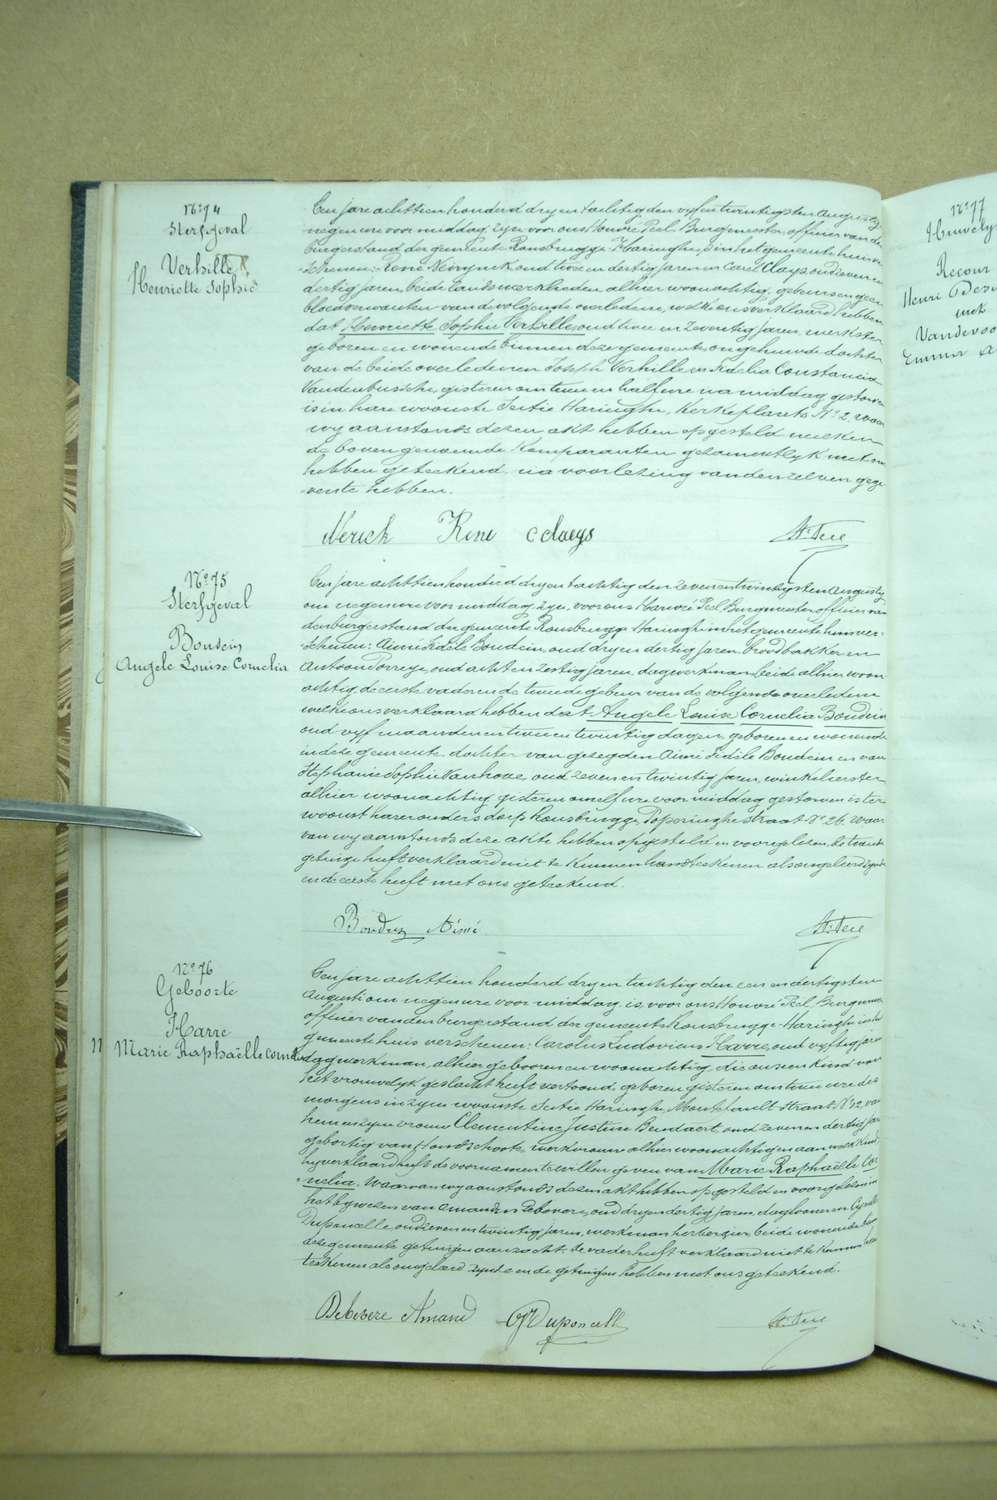 N° 74
Sterfgeval
Verhille
Henriette Sophie
Een jare achttien honderd dry en tachtig den vyf en twintigsten Augusty
negen ure voor middag, zyn voor ons Honoré Peel Burgmeester, officier van den
burgerstand der gemeente Rousbrugge-Haringhe, in het gemeentehuis ver-
schenen: René Neirynck oud twee en dertig jaren en Carel Claeys oud seven en
dertig jaren, beide landswerklieden alhier woonachtig, geburen geen
bloedverwanten van de volgende overledene, welke ons verklaard hebben
dat Henriette Sophie Verhille, oud twee en zeventig jaren, werkster
geboren en wonende binnen deze gemeente, ongehuwde dochter
van de beide overledenen Joseph Verhille en Fidelia Constancia
Vandenbussche, gisteren om twee en half ure na middag gestorven
is in hare woonste Sectie Haringhe, Kerkeplaats N° 2, waar
wy aanstonds dezen akt hebben opgesteld welken
de bovengenoemde komparanten gezamentlyk met ons
hebben geteekend na voorlezing van denzelven gege-
ven te hebben.
Nerick René C Claeys Hre Peel
N° 75
Sterfgeval
Boudein
Angele Louise Cornelia
Een jare achttien honderd dry en tachtig den zeven en twintigsten Augusty
om negen ure voor middag, zyn voor ons Honoré Peel Burgmeester, officier van
den burgerstand der gemeente Rousbrugge-Haringhe in het gemeentehuis ver-
schenen: Aimé Fidele Boudein, oud dry en dertig jaren, broodbakker en
Antoon Porreye, oud acht en zestig jaren, dagwerkman, beide alhier woon-
achtig, de eerste vader en de tweede gebuur van de volgende overledene
welke ons verklaard hebben dat Angele Louise Cornelia Boudein
oud vyf maanden en twee en twintig dagen, geboren en wonende
in deze gemeente, dochter van gezegden Aimé Fidele Boudein en van
Stephanie Sophie Vanhove, oud zeven en twintig jaren, winkelierster
alhier woonachtig, gisteren om elf ure voor middag gestorven is ter
woonst harer ouders dorp Rousbrugge, Poperinghestraat N° 26, waar
van wy aanstonds deze akte hebben opgesteld en voorgelezen, de tweede
getuige heeft verklaard niet te kunnen handteekenen als ongeleerd zynde
en de eerste heeft met ons geteekend.
Boudein Aimé Hre Peel
N° 76
Geboorte
Harre
Marie Raphaëlle Cornelia
Een jare achttien honderd dry en tachtig den een en dertigsten
Augusti om negen ure voor middag, is voor ons Honoré Peel Burgmeester
officier van den burgerstand der gemeente Rousbrugge-Haringhe in het
gemeentehuis verschenen: Carolus Ludovicus Harre, oud vyftig jaren
dagwerkman, alhier geboren en woonachtig, die ons een kind van
het vrouwelyk geslacht heeft vertoond, geboren gisteren om twee ure des
morgens in zyne woonste Sectie Haringhe, Straat N° 32, van
hem en zyne vrouw Clementine Justine Bendaert, oud zeven en dertig jaren
geboortig van Hondschoote, werkvrouw alhier woonachtig, en aan welk kind
hy verklaard heeft de voornamen te willen geven van Marie Raphaëlle Cor-
nelia. Waarvan wy aanstonds dezen akt hebben opgesteld en voorgelezen in
het bywezen van Amandus Debevere, oud dry en dertig jaren, daglooner en Cyrille
Duponcelle oud seven en twintig jaren, werkman herbergier, beide wonende binnen
deze gemeente getuigen aanzocht; de vader heeft verklaard niet te kunnen hand-
teekenen als ongeleerd zynde en de getuigen hebben met ons geteekend.
Debevere Amand C Duponcelle Hre Peel
N° 77
Huwelyk
Recour
Henri
met
Vandevoo
Emma